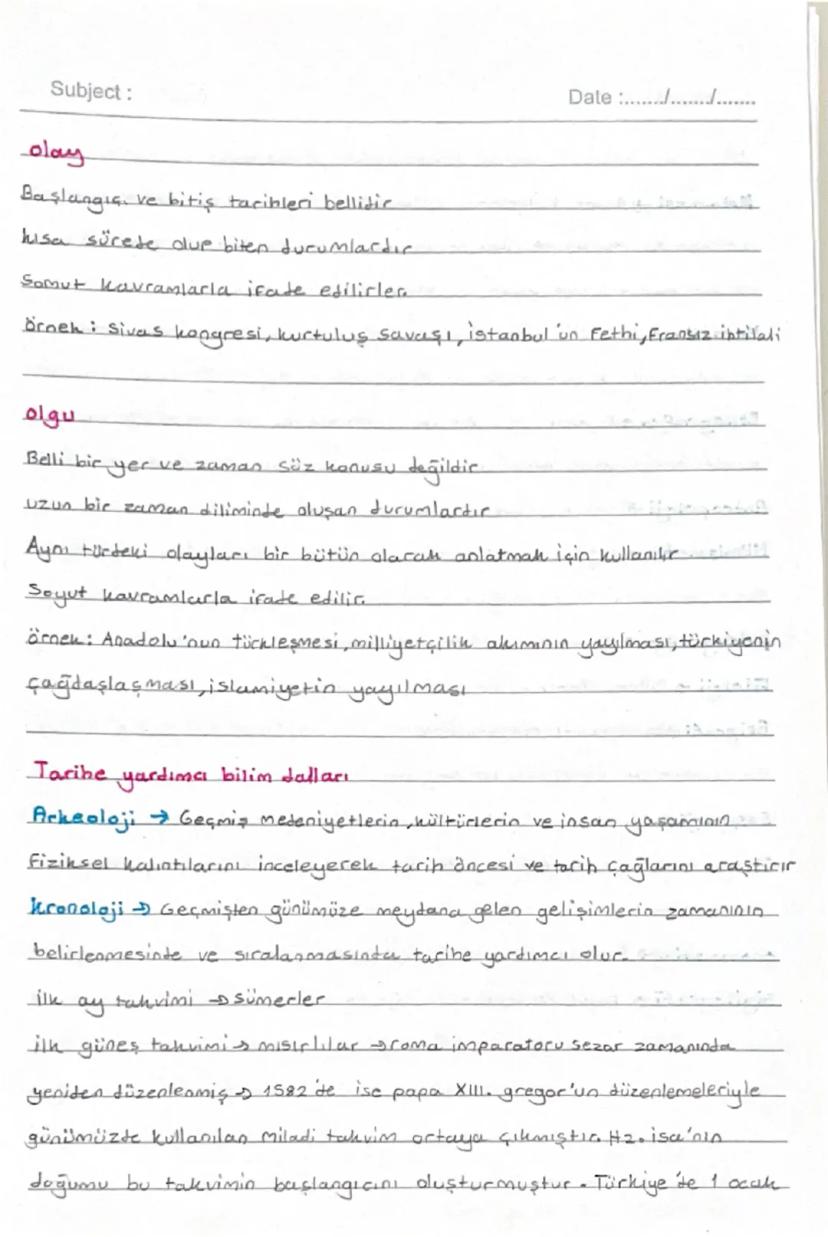 Subject :
Date :......./......./.......
olay
Başlangıç ve bitiş tarihleri bellidir
kısa sürede olup biten durumlardır
Somut kavramlarla ifade edilirler.
örnek : Sivas kongresi, kurtuluş savaşı, istanbul'un Fethi, Fransız ihtilali
olgu
Belli bir yer ve zaman söz konusu değildir
uzun bir zaman diliminde oluşan durumlardır
Aynı türdeki olayları bir bütün olarak anlatmak için kullanılır
Soyut kavramlarla ifade edilir.
örnek : Anadolu'nun türkleşmesi, milliyetçilik akımının yayılması, türkiyenin
çağdaşlaşması, islamiyetin yayılması
Tarihe yardımcı bilim dalları
Arkeoloji → Geçmiş medeniyetlerin, kültürlerin ve insan yaşamının
fiziksel kalıntılarını inceleyerek tarih öncesi ve tarih çağlarını araştırır
kronoloji → Geçmişten günümüze meydana gelen gelişimlerin zamanının
belirlenmesinde ve sıralanmasında tarihe yardımcı olur.
ilk ay takvimi → sümerler
ilk güneş takvimi → mısırlılar → roma imparatoru sezar zamanında
yeniden düzenlenmiş → 1582'de ise papa XIII. gregor'un düzenlemeleriyle
günümüzde kullanılan miladi takvim ortaya çıkmıştır. Hz. isa'nın
doğumu bu takvimin başlangıcını oluşturmuştur. Türkiye'de 1 ocak